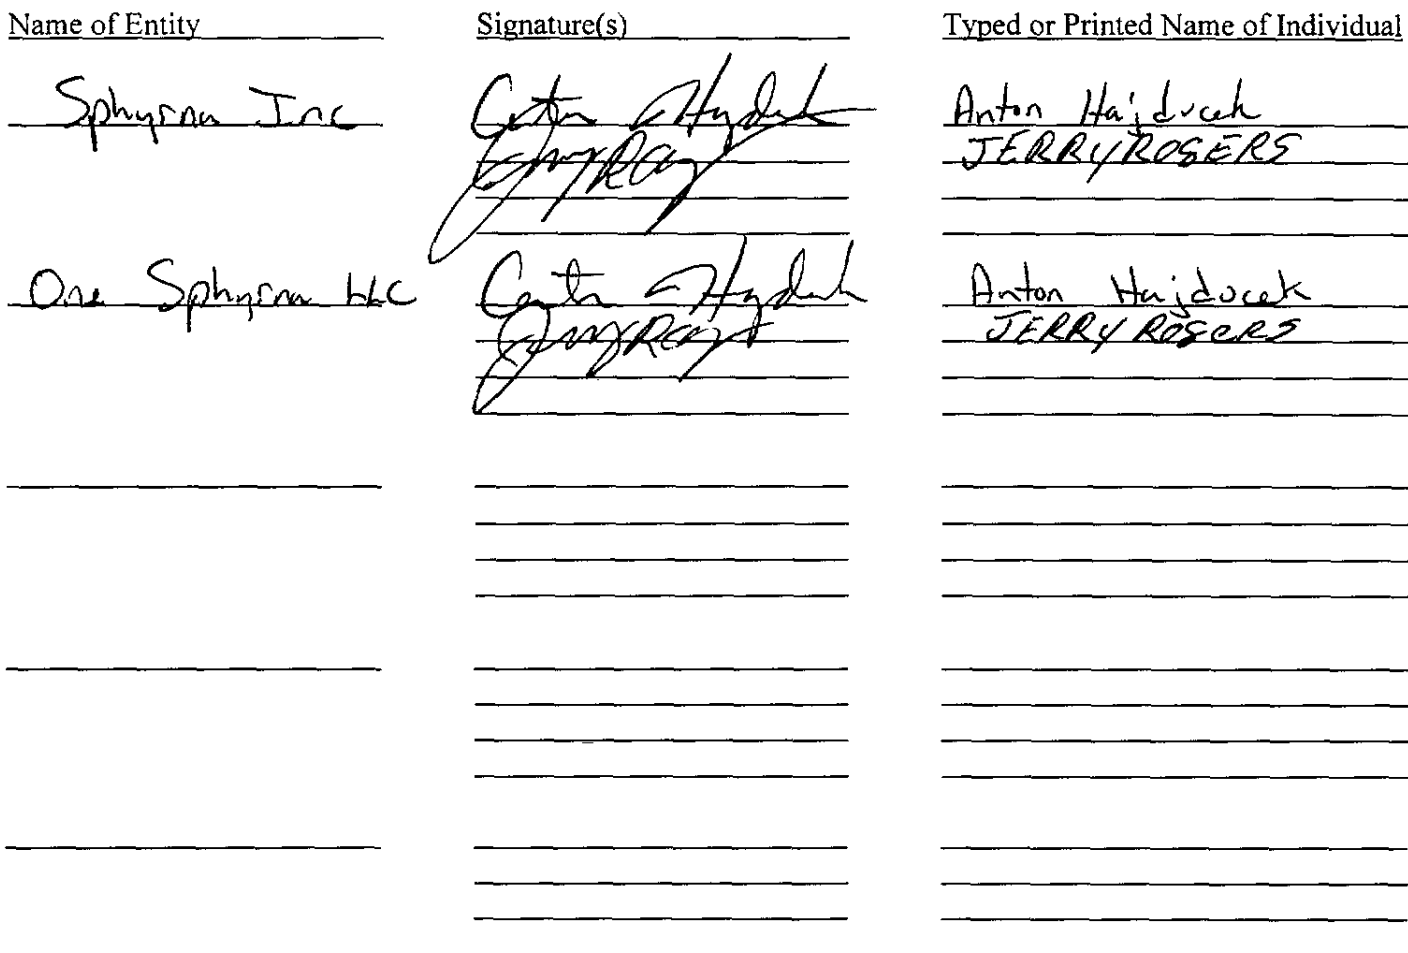 Name of Entity Signature(s) Typed or Printed Name of Individual
Sphyrna Inc Anton Hajducek
JERRY ROGERS
One Sphyrna LLC Anton Hajducek
JERRY ROGERS